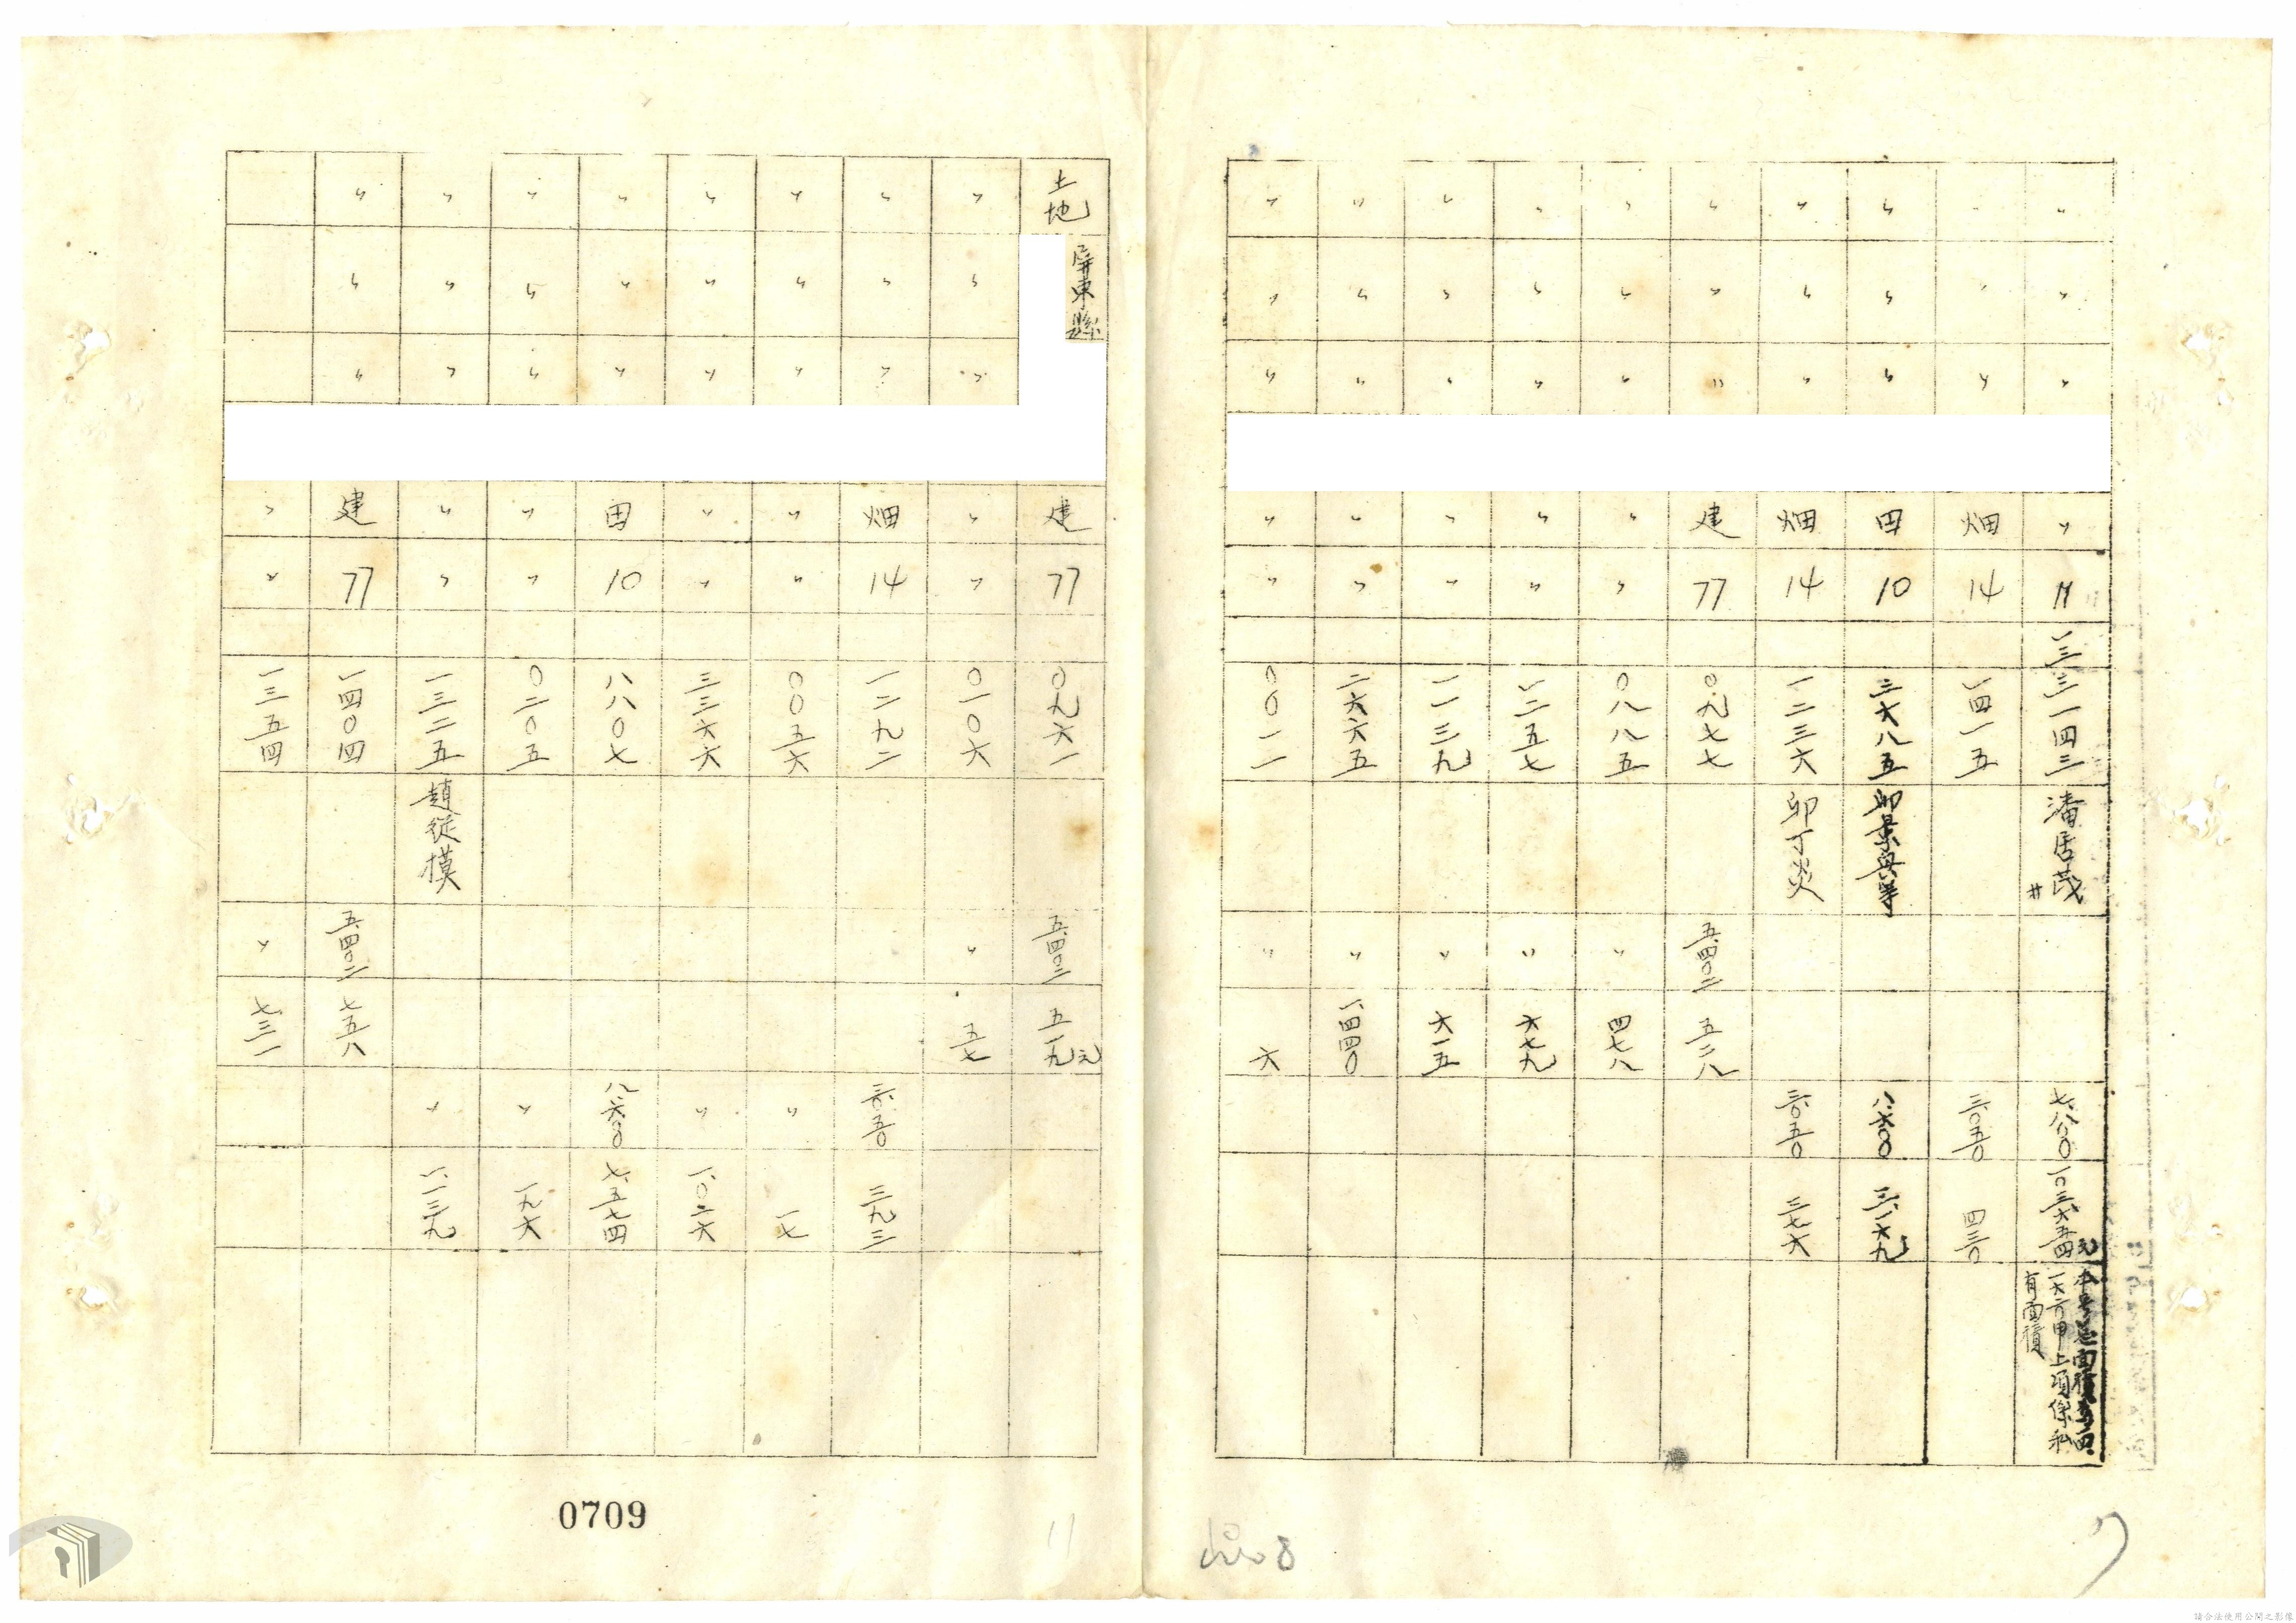 〃 〃 〃 〃 11 一三三一四三 潘居茂 廿 七八〇〇 一〇三六五四元 上項係私有面積
〃 〃 〃 畑 14 一四一五 三〇五〇 四三〇
〃 〃 〃 田 10 三六八五 八六〇〇 三一六九
〃 〃 〃 畑 14 一二三六 卯丁炎 三〇五〇 三七六
〃 〃 〃 建 77 〇九七七 五四〇二 五二八
〃 〃 〃 〃 〃 〇八八五 〃 四七八
〃 〃 〃 〃 〃 一二五七 〃 六七九
〃 〃 〃 〃 〃 一一三九 〃 六一五
〃 〃 〃 〃 〃 二六六五 〃 一四四〇
〃 〃 〃 〃 〃 〇〇一一 〃 六
土地 屏東縣 建 77 〇九六一 五四〇二 五一九元
〃 〃 〃 〃 〃 〇一〇六 〃 五七
〃 〃 〃 畑 14 一二九二 三〇五〇 三九三
〃 〃 〃 〃 〃 〇〇五六 〃 一七
〃 〃 〃 〃 〃 三三六六 〃 一〇二六
〃 〃 〃 田 10 八八〇七 八六〇〇 七五七四
〃 〃 〃 〃 〃 〇二〇五 〃 一九六
〃 〃 〃 〃 〃 一三二五 趙從模 〃 一一三九
〃 〃 〃 建 77 一四〇四 五四〇二 七五八
〃 〃 一三五四 〃 七三一
0709
11
8
請合法使用公開之影像